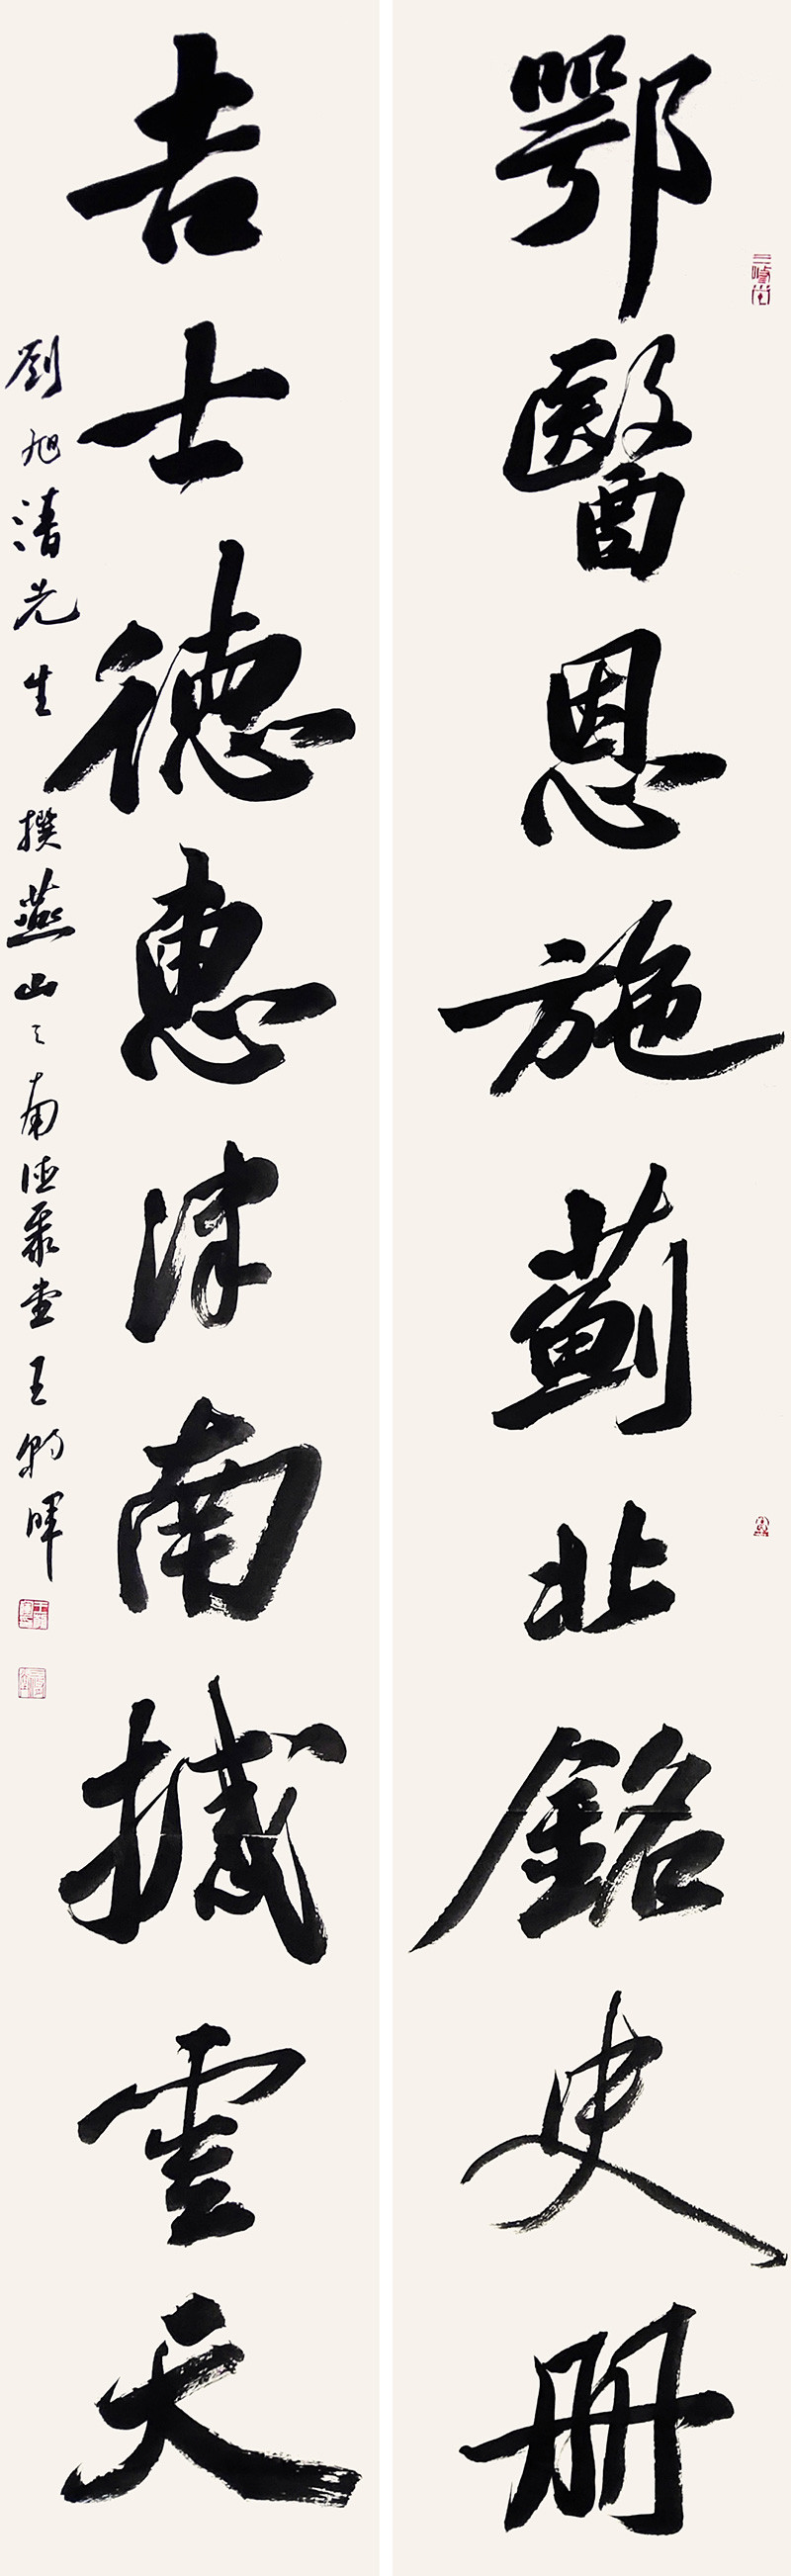 鄂醫恩施薊北銘史册
吉士德惠津南撼雲天
劉旭清先生撰燕山之南德聚堂王朝暉